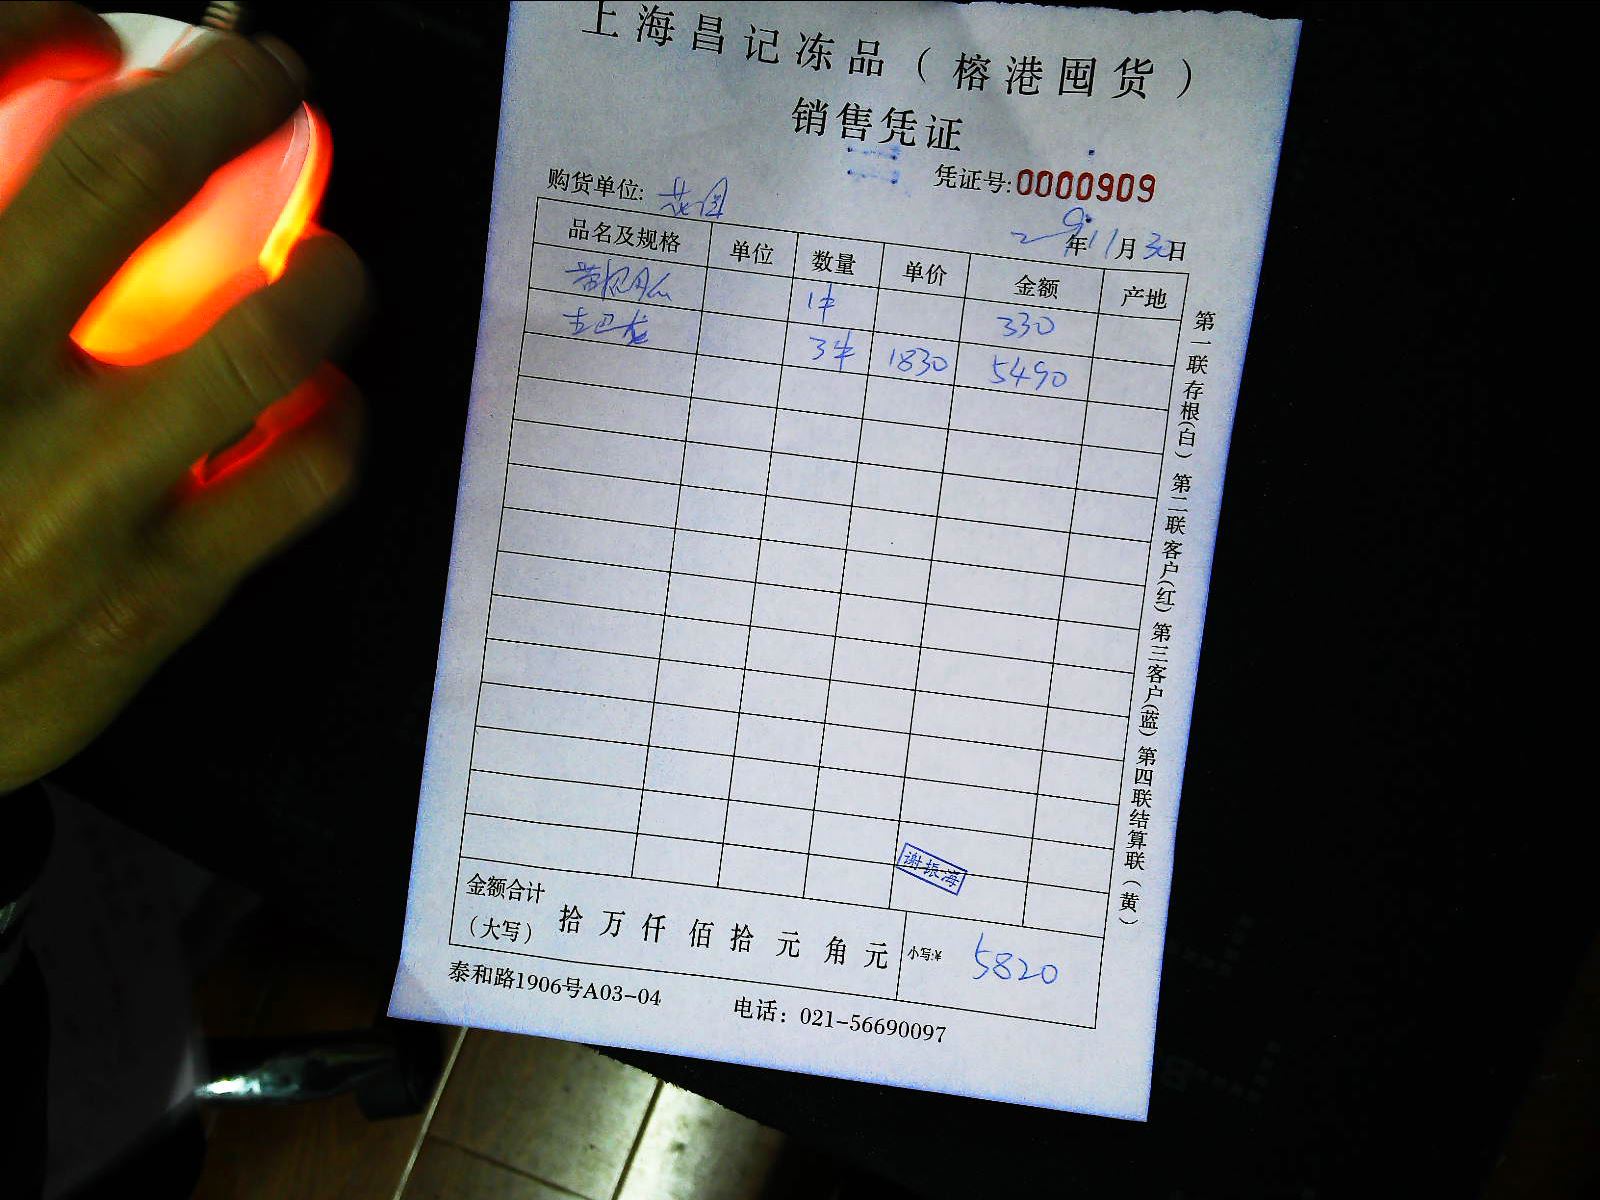 上海昌记冻品（榕港囤货）
销售凭证
凭证号:0000909
购货单位: 花园
年11月30日
品名及规格 单位 数量 单价 金额 产地
1件 330
3件 1830 5490
谢振海
金额合计（大写） 拾 万 仟 佰 拾 元 角 元 小写:¥ 5820
泰和路1906号A03-04 电话：021-56690097
第一联存根(白) 第二联客户(红) 第三客户(蓝) 第四联结算联（黄）